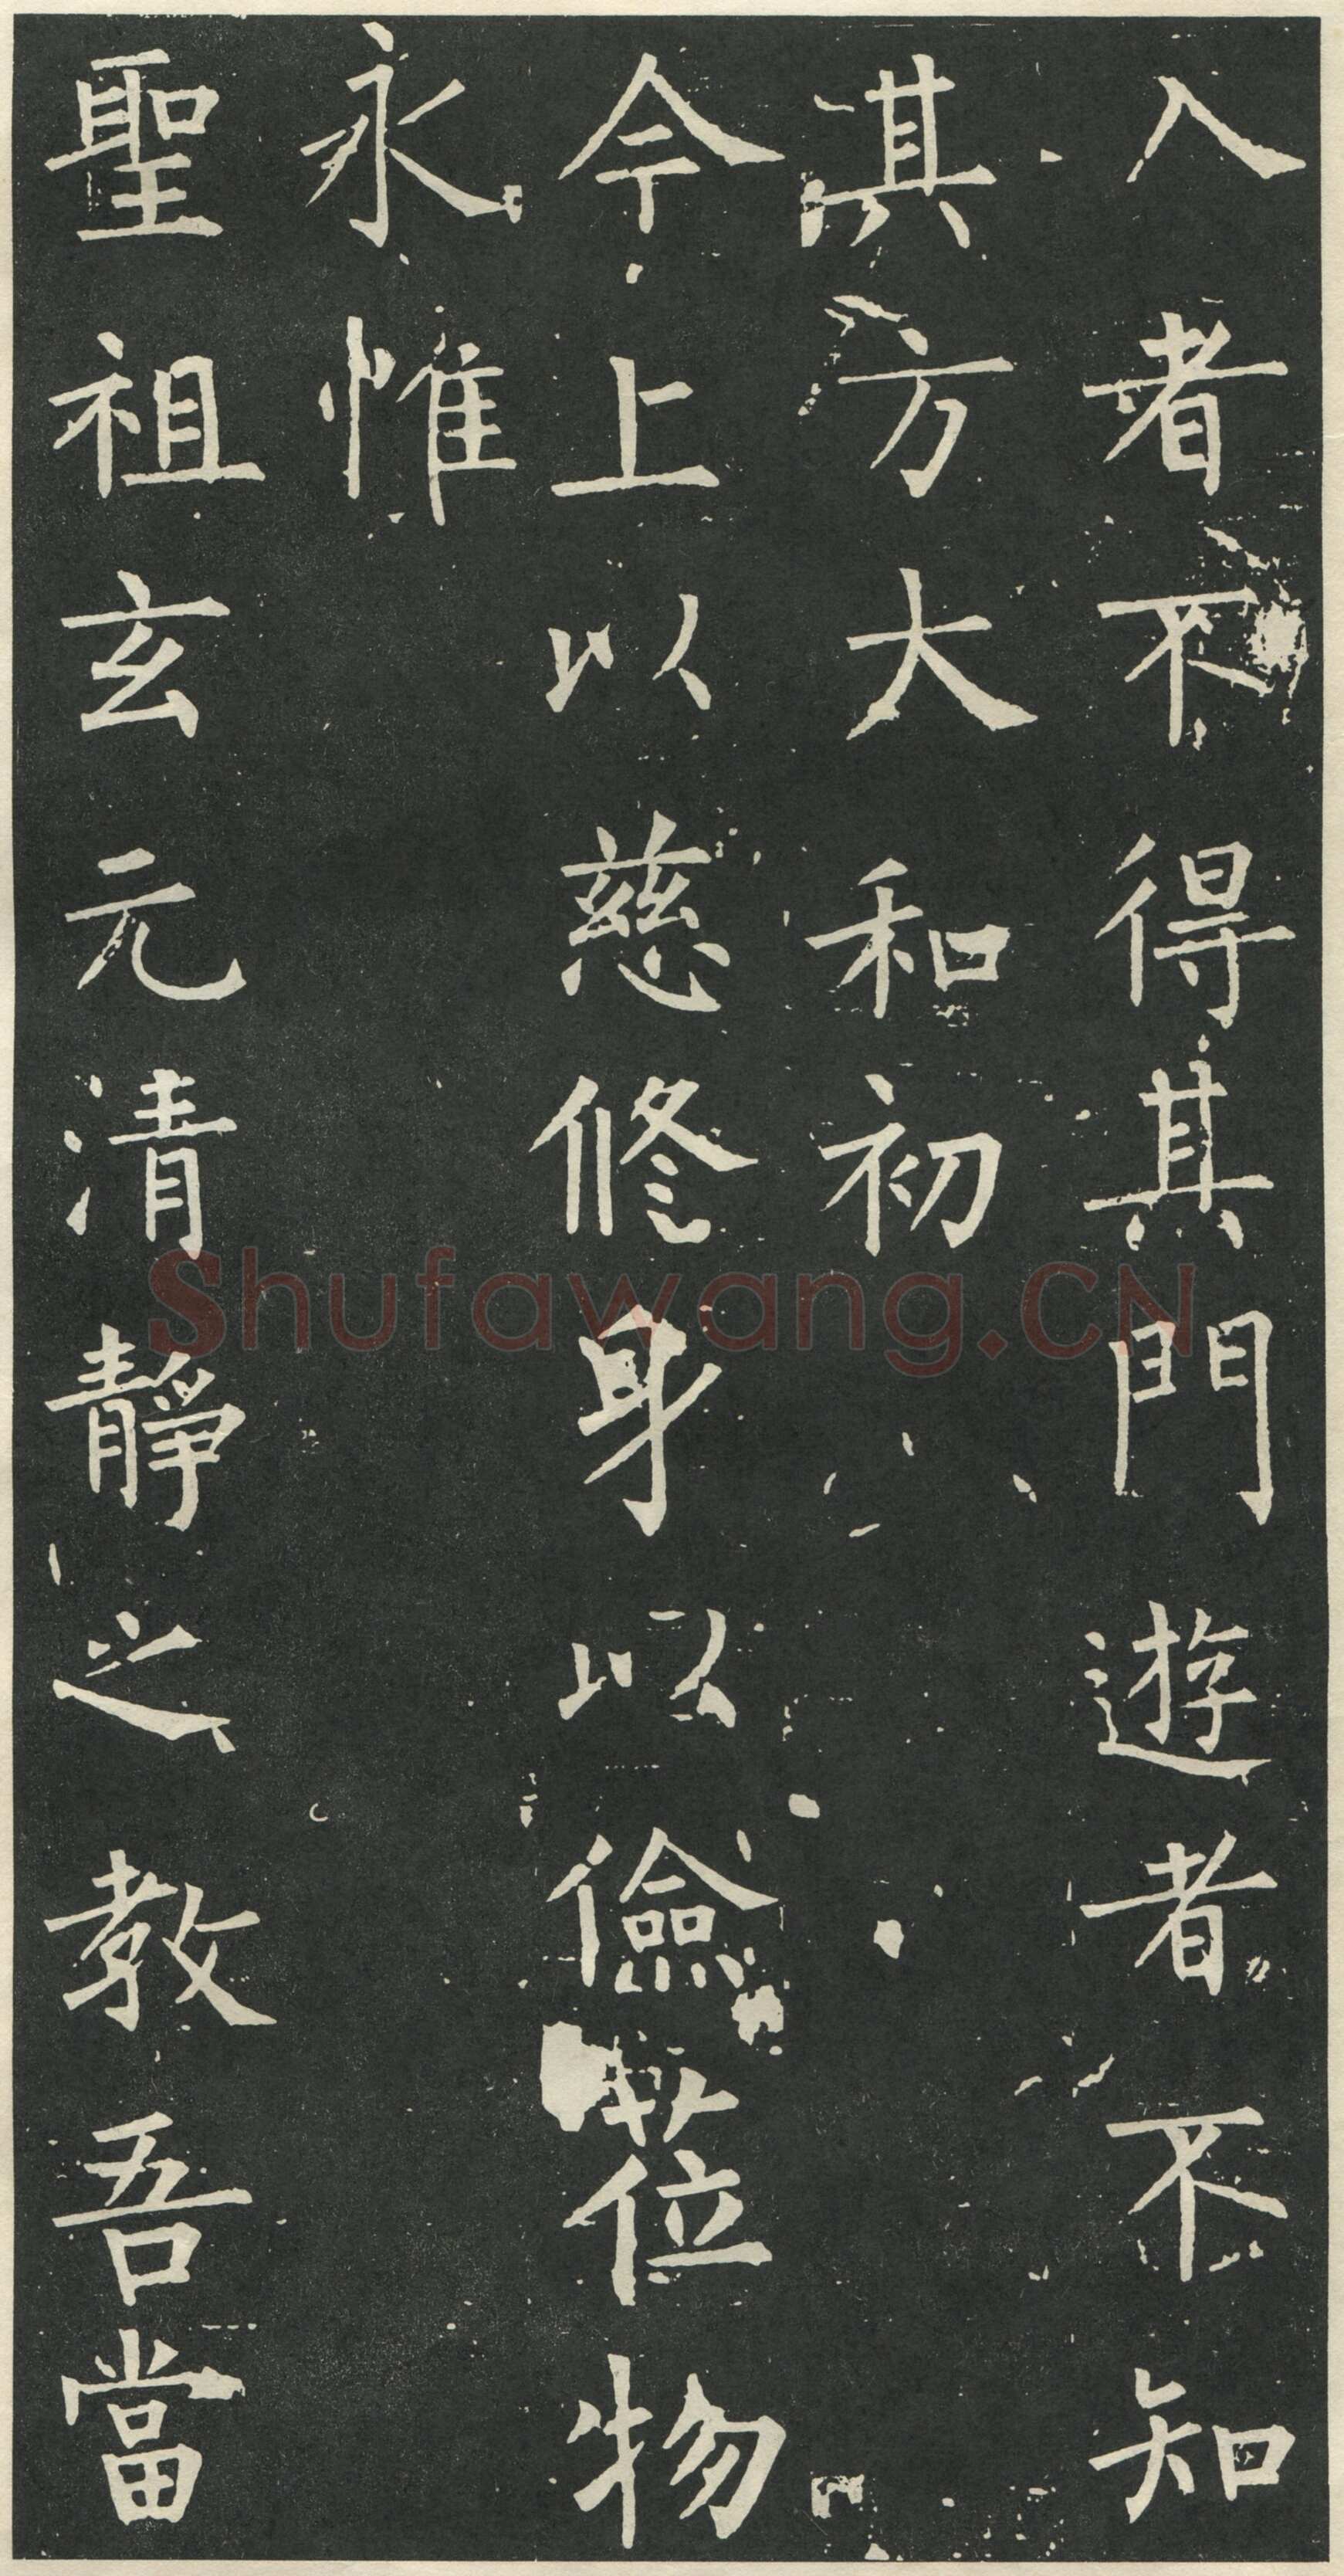 入者不得其門遊者不知
其方大和初
今上以慈修身以儉莅物
永惟
聖祖玄元清靜之教吾當
Shufawang.CN